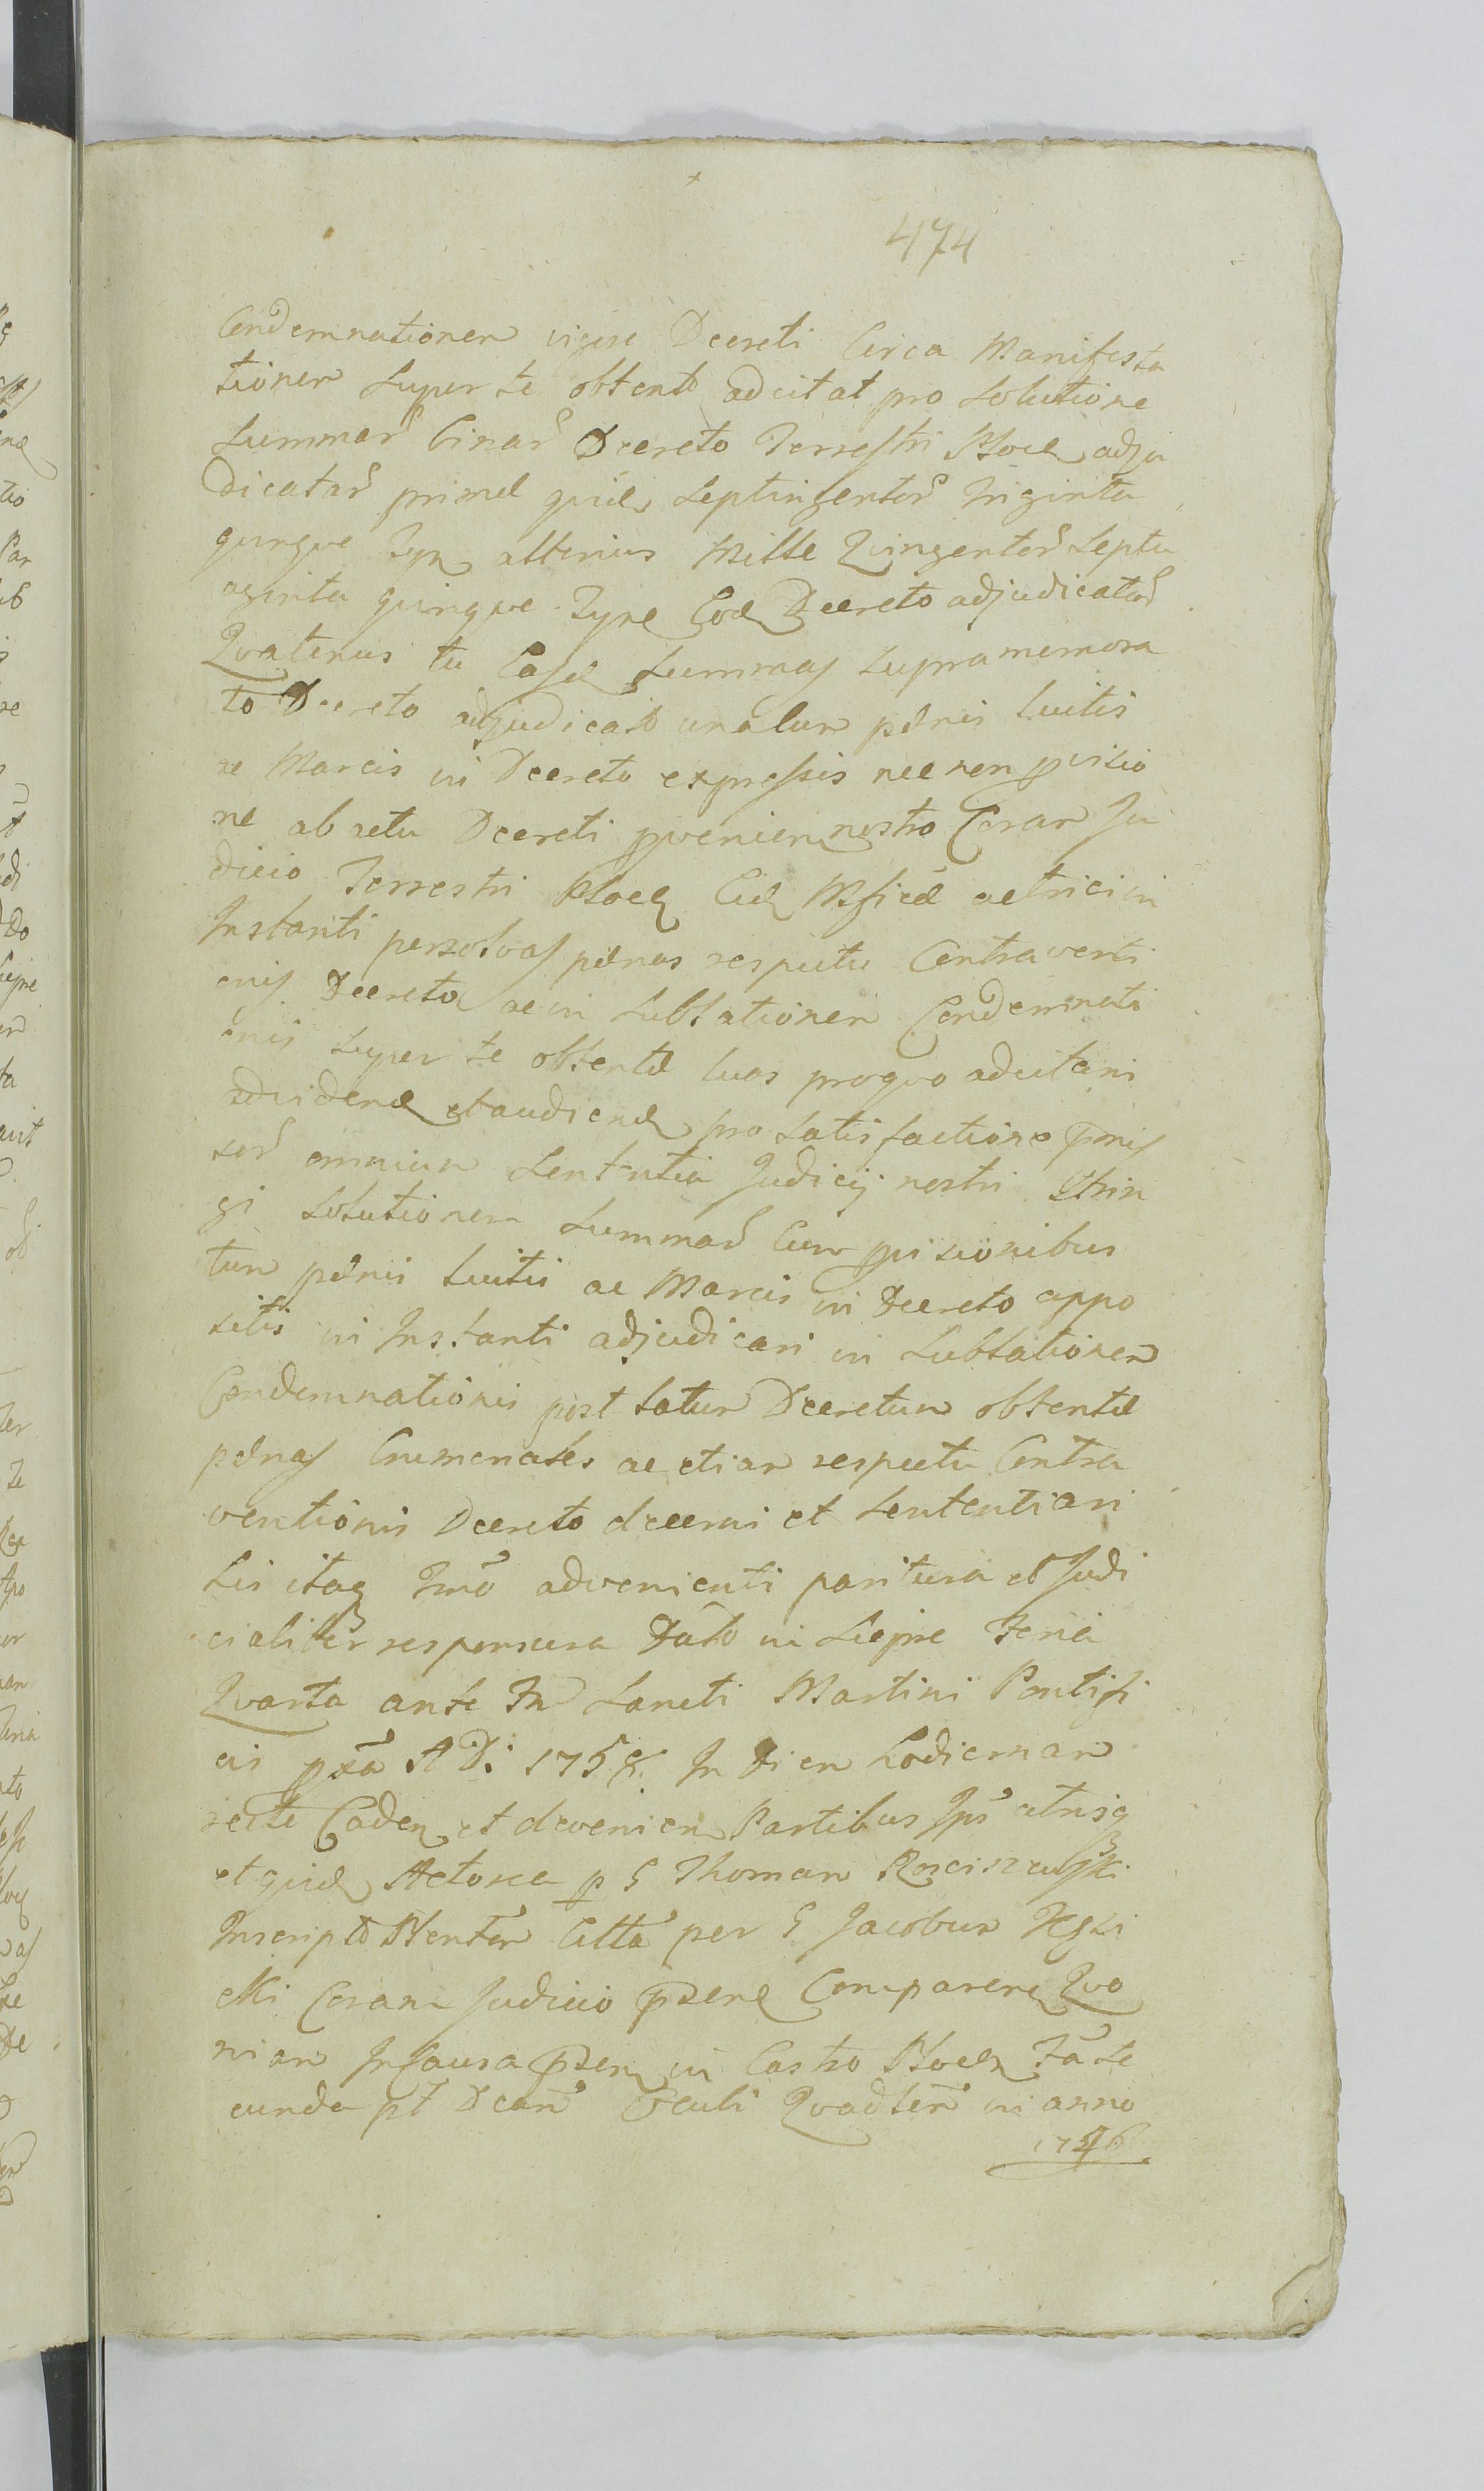 474
Condemnationem vigore Decreti Circa Manifesta
tionem super te obtento adcitat pro solutione
Summar binar Decreto Terrestri Ploc adju
dicatar primæ quid Septingentor triginta
quinque Tyn alterius Mille Quingentor Septu
aginta quinque Tyn Eod Decreto adjudicatar
Quatenus tu easd Summas supramemora
to Decreto adjudicato una cum pænis luitis
ac Marcis in Decreto expressis nec non pvisio
ne ab actu Decreti pvenien nostro Coram Ju
dicio Terrestri Ploc Eid Mficæ actrici in
Instanti persolvas pænas respectu Contraventi
onis Decreto ac in sublationem Condemnati
onis super te obtentæ luas pro quo adcitari
advidend et audiend pro satisfactione pmis
sor omnium Sententia Judicij nostri Strin
gi Solutionem Summar Cum pvisionibus
tum pænis luitis ac Marcis in Decreto appo
sitis in Instanti adjudicari in Sublationem
Condemnationis post latum Decretum obtentæ
pænas Crumenales ac etiam respectu Contra
ventionis Decreto decerni et Sententiari
Sis itaq Tmo advenienti paritura et Judi
cialiter responsura Dato in Sieprc Feria
Quarta ante Fm Sancti Martini Pontifi
cis pxa A D. 1758. In Diem hodiernam
recte Caden et devenien Partibus Ips utrisq
et quid Actorea p G Thomam Rosciszewski
Inscripto Plenter Citta per G Jacobum
Coram Judicio psenl Comparen Quo
niam In Causa psen in Castro Ploc Fa se
cunda pt Dcam Oculi Quadten in anno
1746